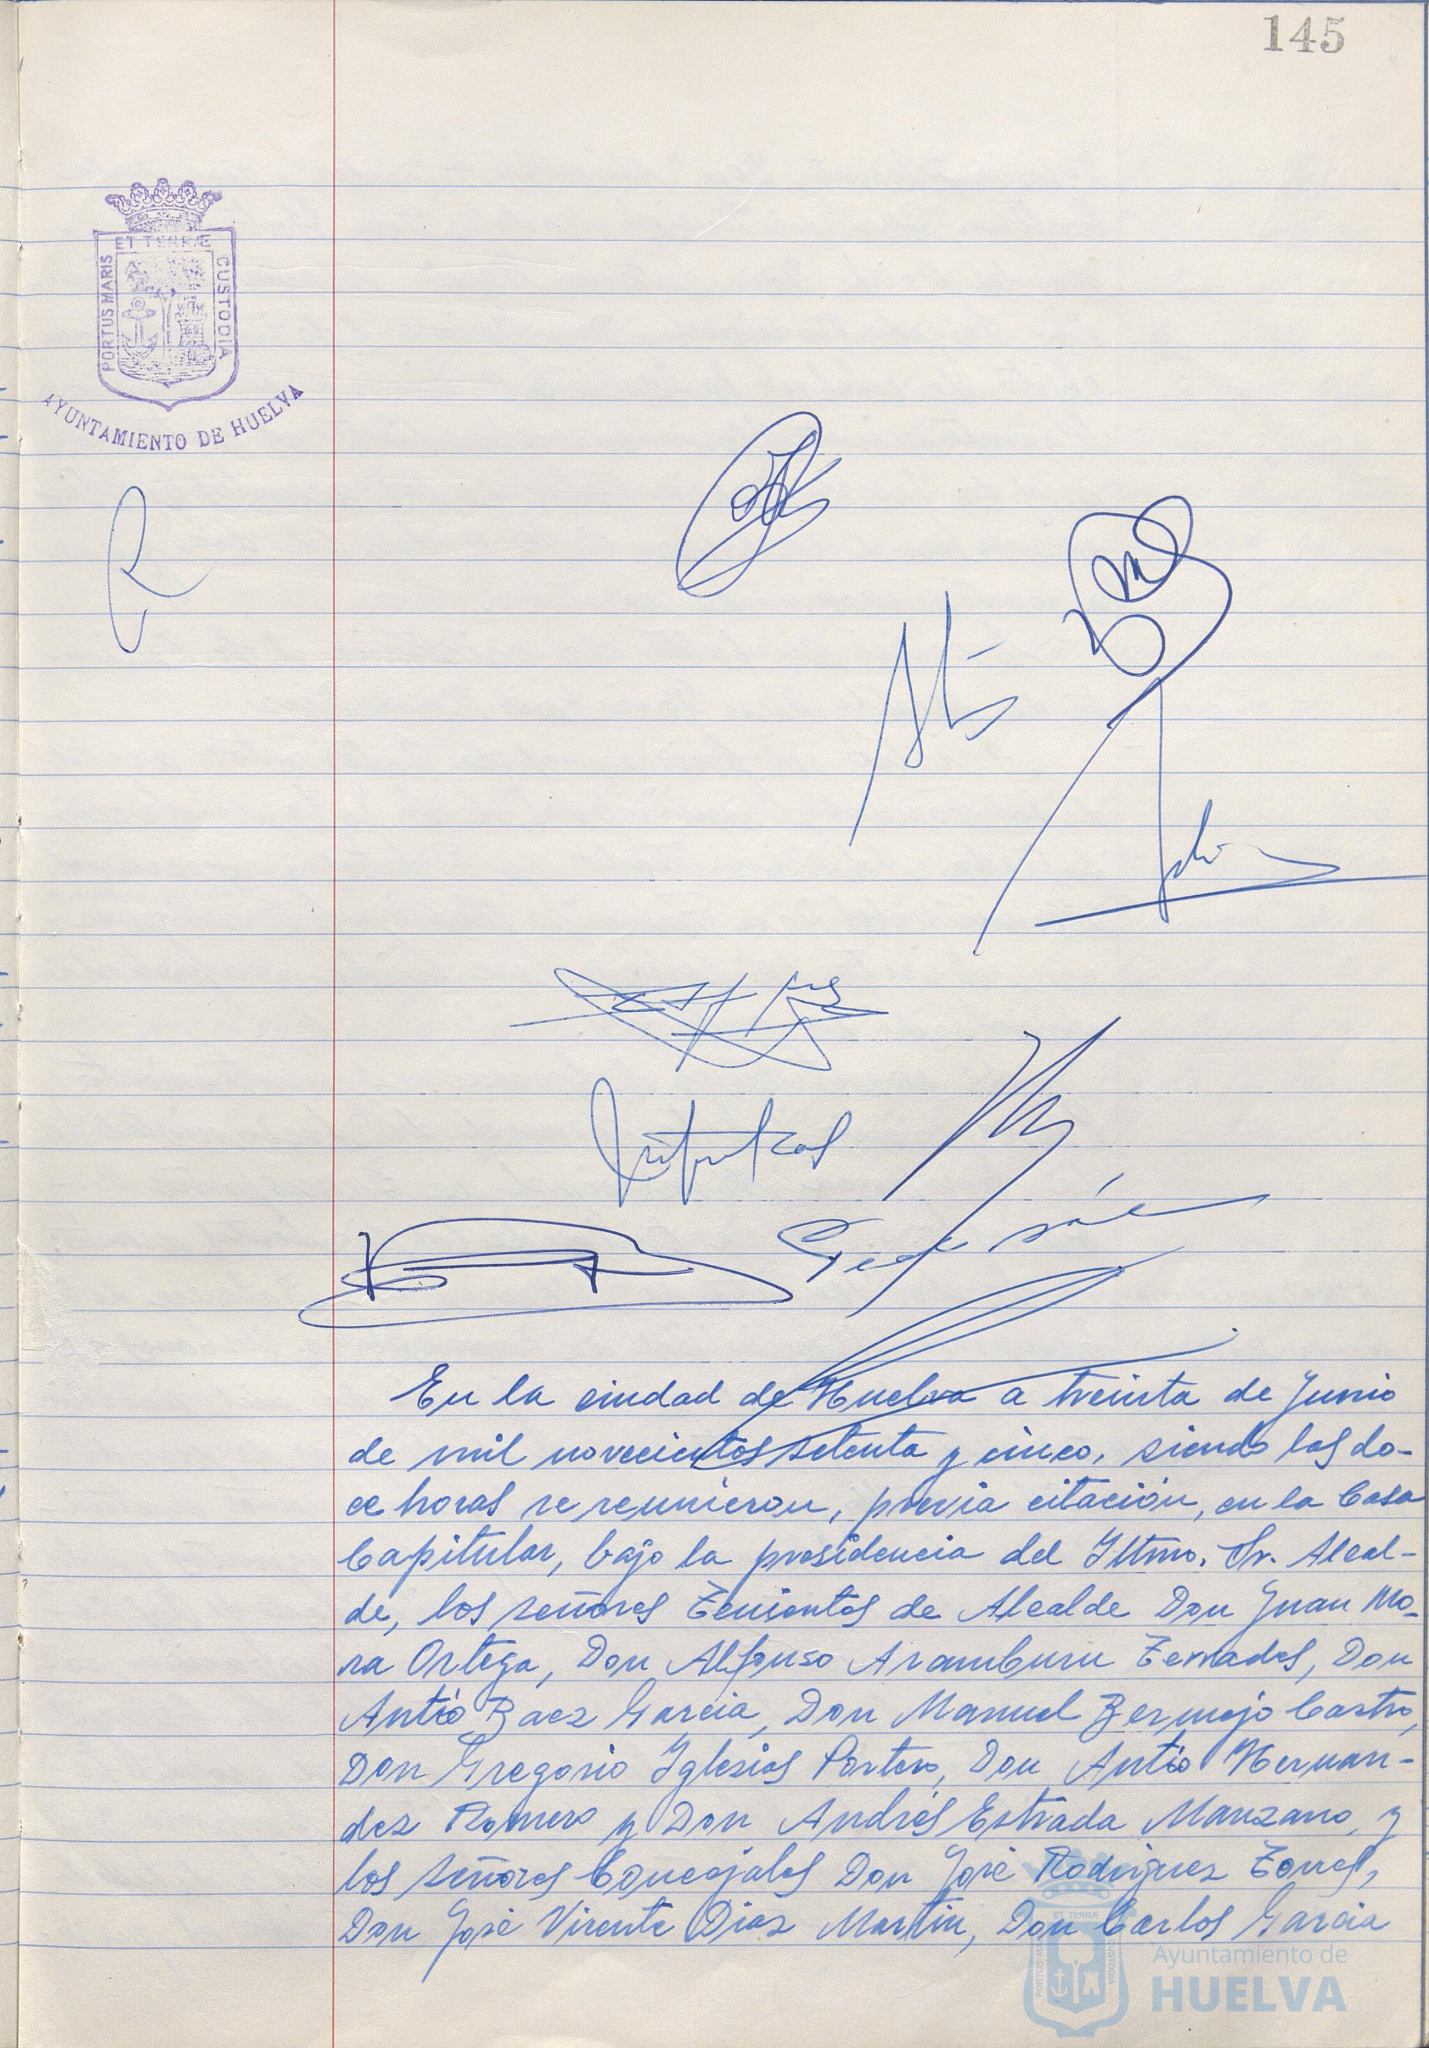 145
ET TERRÆ
PORTUS MARIS
CUSTODIA
AYUNTAMIENTO DE HUELVA
En la ciudad de Huelva a treinta de Junio
de mil novecientos setenta y cinco, siendo las do-
ce horas se reunieron, previa citación, en la Casa
Capitular, bajo la presidencia del Iltmo. Sr. Alcal-
de, los señores Tenientes de Alcalde Don Juan Mo-
ra Ortega, Don Alfonso Aramburu Terrades, Don
Antº Baez Garcia, Don Manuel Bermejo Castro,
Don Gregorio Iglesias Portero, Don Antº Hernan-
dez Romero y Don Andrés Estrada Manzano, y
los señores Concejales Don José Rodriguez Torres,
Don José Vicente Diaz Martin, Don Carlos Garcia
ET TERRÆ
Ayuntamiento de
HUELVA